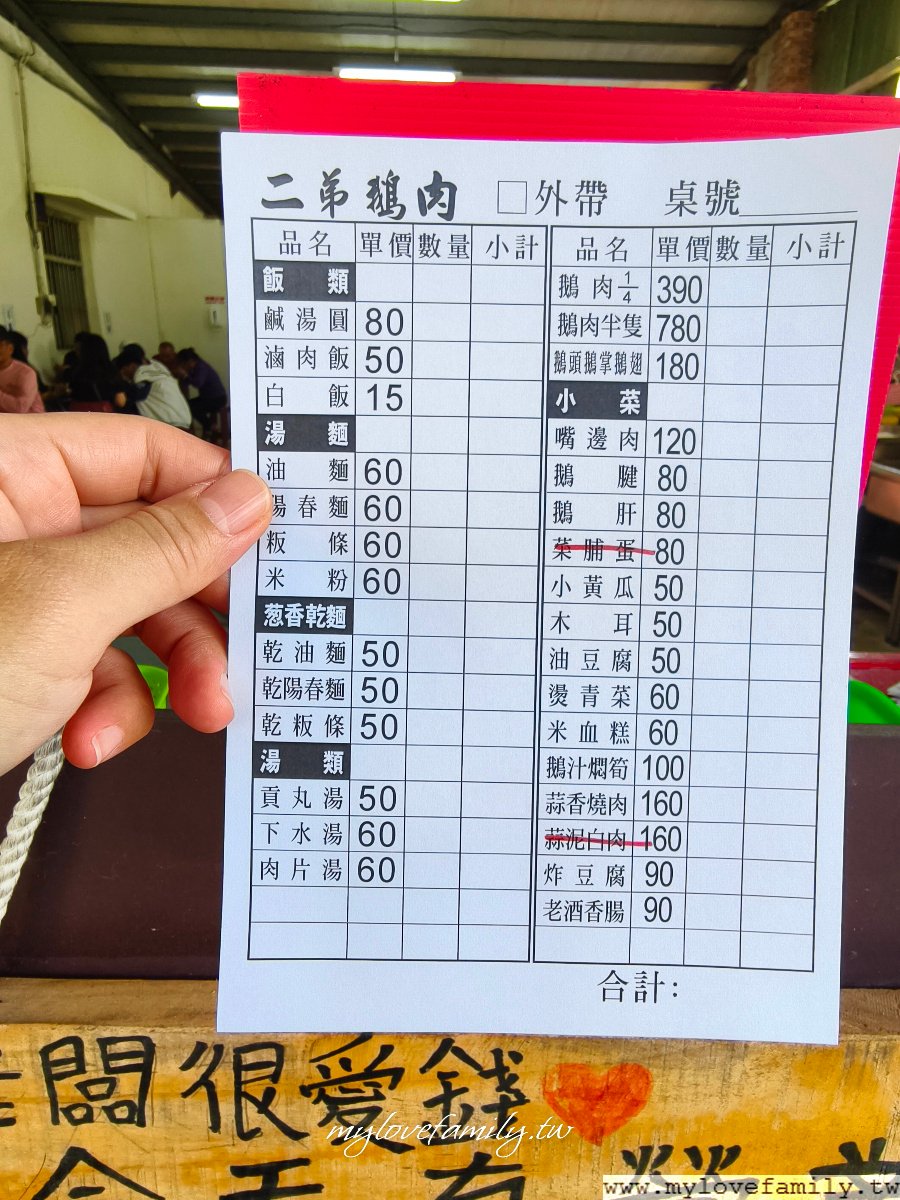 二弟鵝肉 □外帶 桌號
品名 單價 數量 小計
飯類
鹹湯圓 80
滷肉飯 50
白飯 15
湯麵
油麵 60
陽春麵 60
粄條 60
米粉 60
葱香乾麵
乾油麵 50
乾陽春麵 50
乾粄條 50
湯類
貢丸湯 50
下水湯 60
肉片湯 60
品名 單價 數量 小計
鵝肉1/4 390
鵝肉半隻 780
鵝頭鵝掌鵝翅 180
小菜
嘴邊肉 120
鵝腱 80
鵝肝 80
菜脯蛋 80
小黃瓜 50
木耳 50
油豆腐 50
燙青菜 60
米血糕 60
鵝汁燜筍 100
蒜香燒肉 160
蒜泥白肉 160
炸豆腐 90
老酒香腸 90
合計:
闆很愛錢
mylovefamily.tw
www.mylovefamily.tw